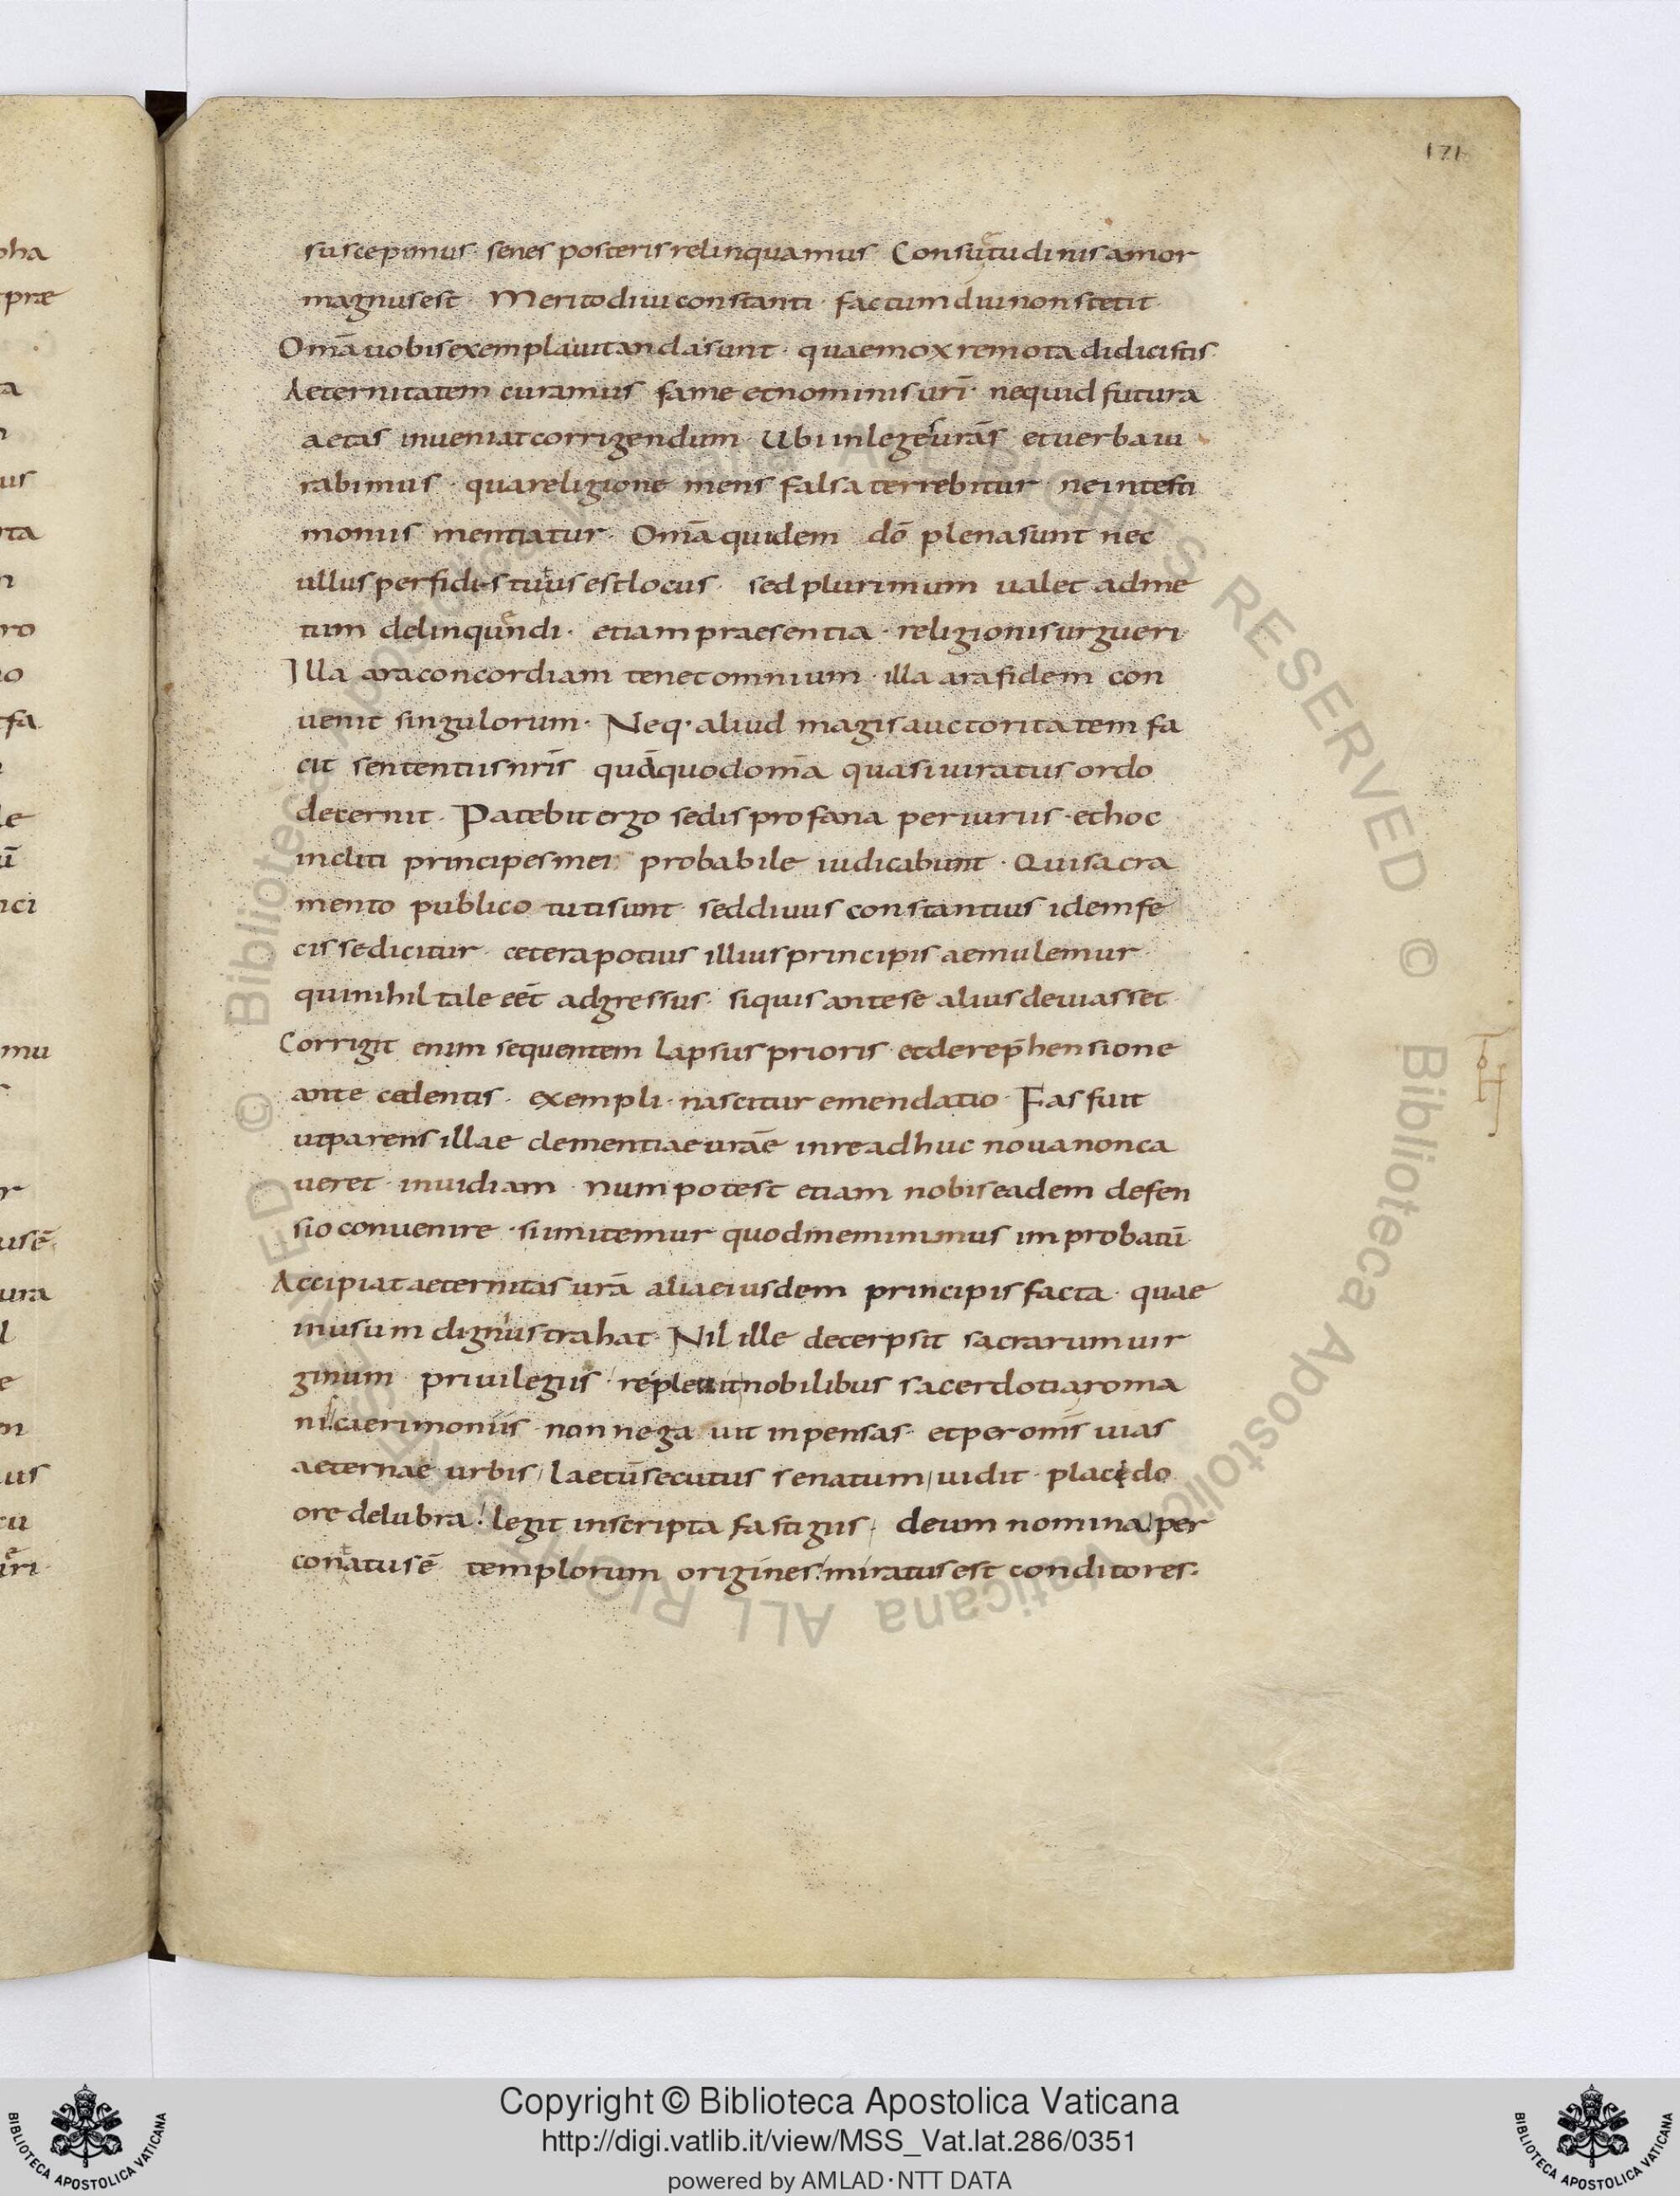 171
suscepimus· senes posteris relinquamus· Consuetudinis amor
magnus est· Merito diui constanti· factum diu non stetit·
Om̄a uobis exempla uitanda sunt· quae mox remota didicistis·
Aeternitatem curamus fame et nominis uri̅· nequid futura
aetas inueniat corrigendum· Ubi in leges urās et uerba iu
rabimus· qua religione mens falsa terrebitur ne in testi
moniis mentiatur· Om̄a quidem dō plena sunt nec
ullus perfidis tutus est locus· sed plurimum ualet ad me
tum delinquendi· etiam praesentia· religionis urgueri·
Illa ara concordiam tenet omnium· illa ara fidem con
uenit singulorum· Neq· aliud magis auctoritatem fa
cit sententiis nr̄is quā quod om̄a quasi iuratus ordo
decernit· Patebit ergo sedis profana periuriis· et hoc
incliti principes mei probabile iudicabunt· Qui sacra
mento publico tuti sunt· sed diuus constantius idem fe
cisse dicitur· cetera potius illius principis aemulemur·
qui nihil tale eēt adgressus· si quis ante se alius deuiasset·
Corrigit enim sequentem lapsus prioris· et de reprehensione
antecedentis· exempli· nascitur emendatio· Fas fuit
ut parens illae clementiae urāe in re adhuc noua non ca
ueret· inuidiam· num potest etiam nobis eadem defen
sio conuenire· si imitemur quod meminimus improbatū·
Accipiat aeternitas urā alia eiusdem principis facta· quae
in usum dignius trahat· Nil ille decerpsit sacrarum uir
ginum priuilegiis· repleuit nobilibus sacerdotia, roma
nis caerimoniis non negauit inpensas· et per omīs uias
aeternae urbis, laetū secutus senatum, uidit placido
ore delubra! legit inscripta fastigiis, deum nomina, per
conatus ē templorum origines! miratus est conditores·
pha
prae
ta
us
ro
fa
le
ū
nci
mu
us ē
ura
l
us
Copyright © Biblioteca Apostolica Vaticana
http://digi.vatlib.it/view/MSS_Vat.lat.286/0351
powered by AMLAD·NTT DATA
BIBLIOTECA APOSTOLICA VATICANA
BIBLIOTECA APOSTOLICA VATICANA
© Biblioteca Apostolica Vaticana ALL RIGHTS RESERVED © Biblioteca Apostolica Vaticana ALL RIGHTS RESERVED